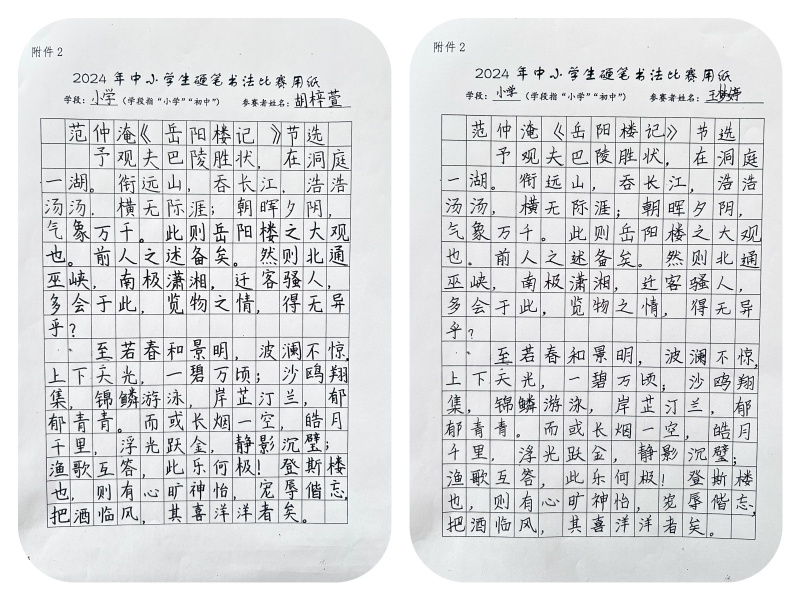 附件2
2024年中小学生硬笔书法比赛用纸
学段：小学（学段指“小学”“初中”） 参赛者姓名：胡梓萱
范仲淹《岳阳楼记》节选
予观夫巴陵胜状，在洞庭
一湖。衔远山，吞长江，浩浩
汤汤，横无际涯；朝晖夕阴，
气象万千。此则岳阳楼之大观
也。前人之述备矣。然则北通
巫峡，南极潇湘，迁客骚人，
多会于此，览物之情，得无异
乎？
至若春和景明，波澜不惊，
上下天光，一碧万顷；沙鸥翔
集，锦鳞游泳，岸芷汀兰，郁
郁青青。而或长烟一空，皓月
千里，浮光跃金，静影沉璧；
渔歌互答，此乐何极！登斯楼
也，则有心旷神怡，宠辱偕忘，
把酒临风，其喜洋洋者矣。
附件2
2024年中小学生硬笔书法比赛用纸
学段：小学（学段指“小学”“初中”） 参赛者姓名：王梦婷
范仲淹《岳阳楼记》节选
予观夫巴陵胜状，在洞庭
一湖。衔远山，吞长江，浩浩
汤汤，横无际涯；朝晖夕阴，
气象万千。此则岳阳楼之大观
也。前人之述备矣。然则北通
巫峡，南极潇湘，迁客骚人，
多会于此，览物之情，得无异
乎？
至若春和景明，波澜不惊，
上下天光，一碧万顷；沙鸥翔
集，锦鳞游泳，岸芷汀兰，郁
郁青青。而或长烟一空，皓月
千里，浮光跃金，静影沉璧；
渔歌互答，此乐何极！登斯楼
也，则有心旷神怡，宠辱偕忘，
把酒临风，其喜洋洋者矣。